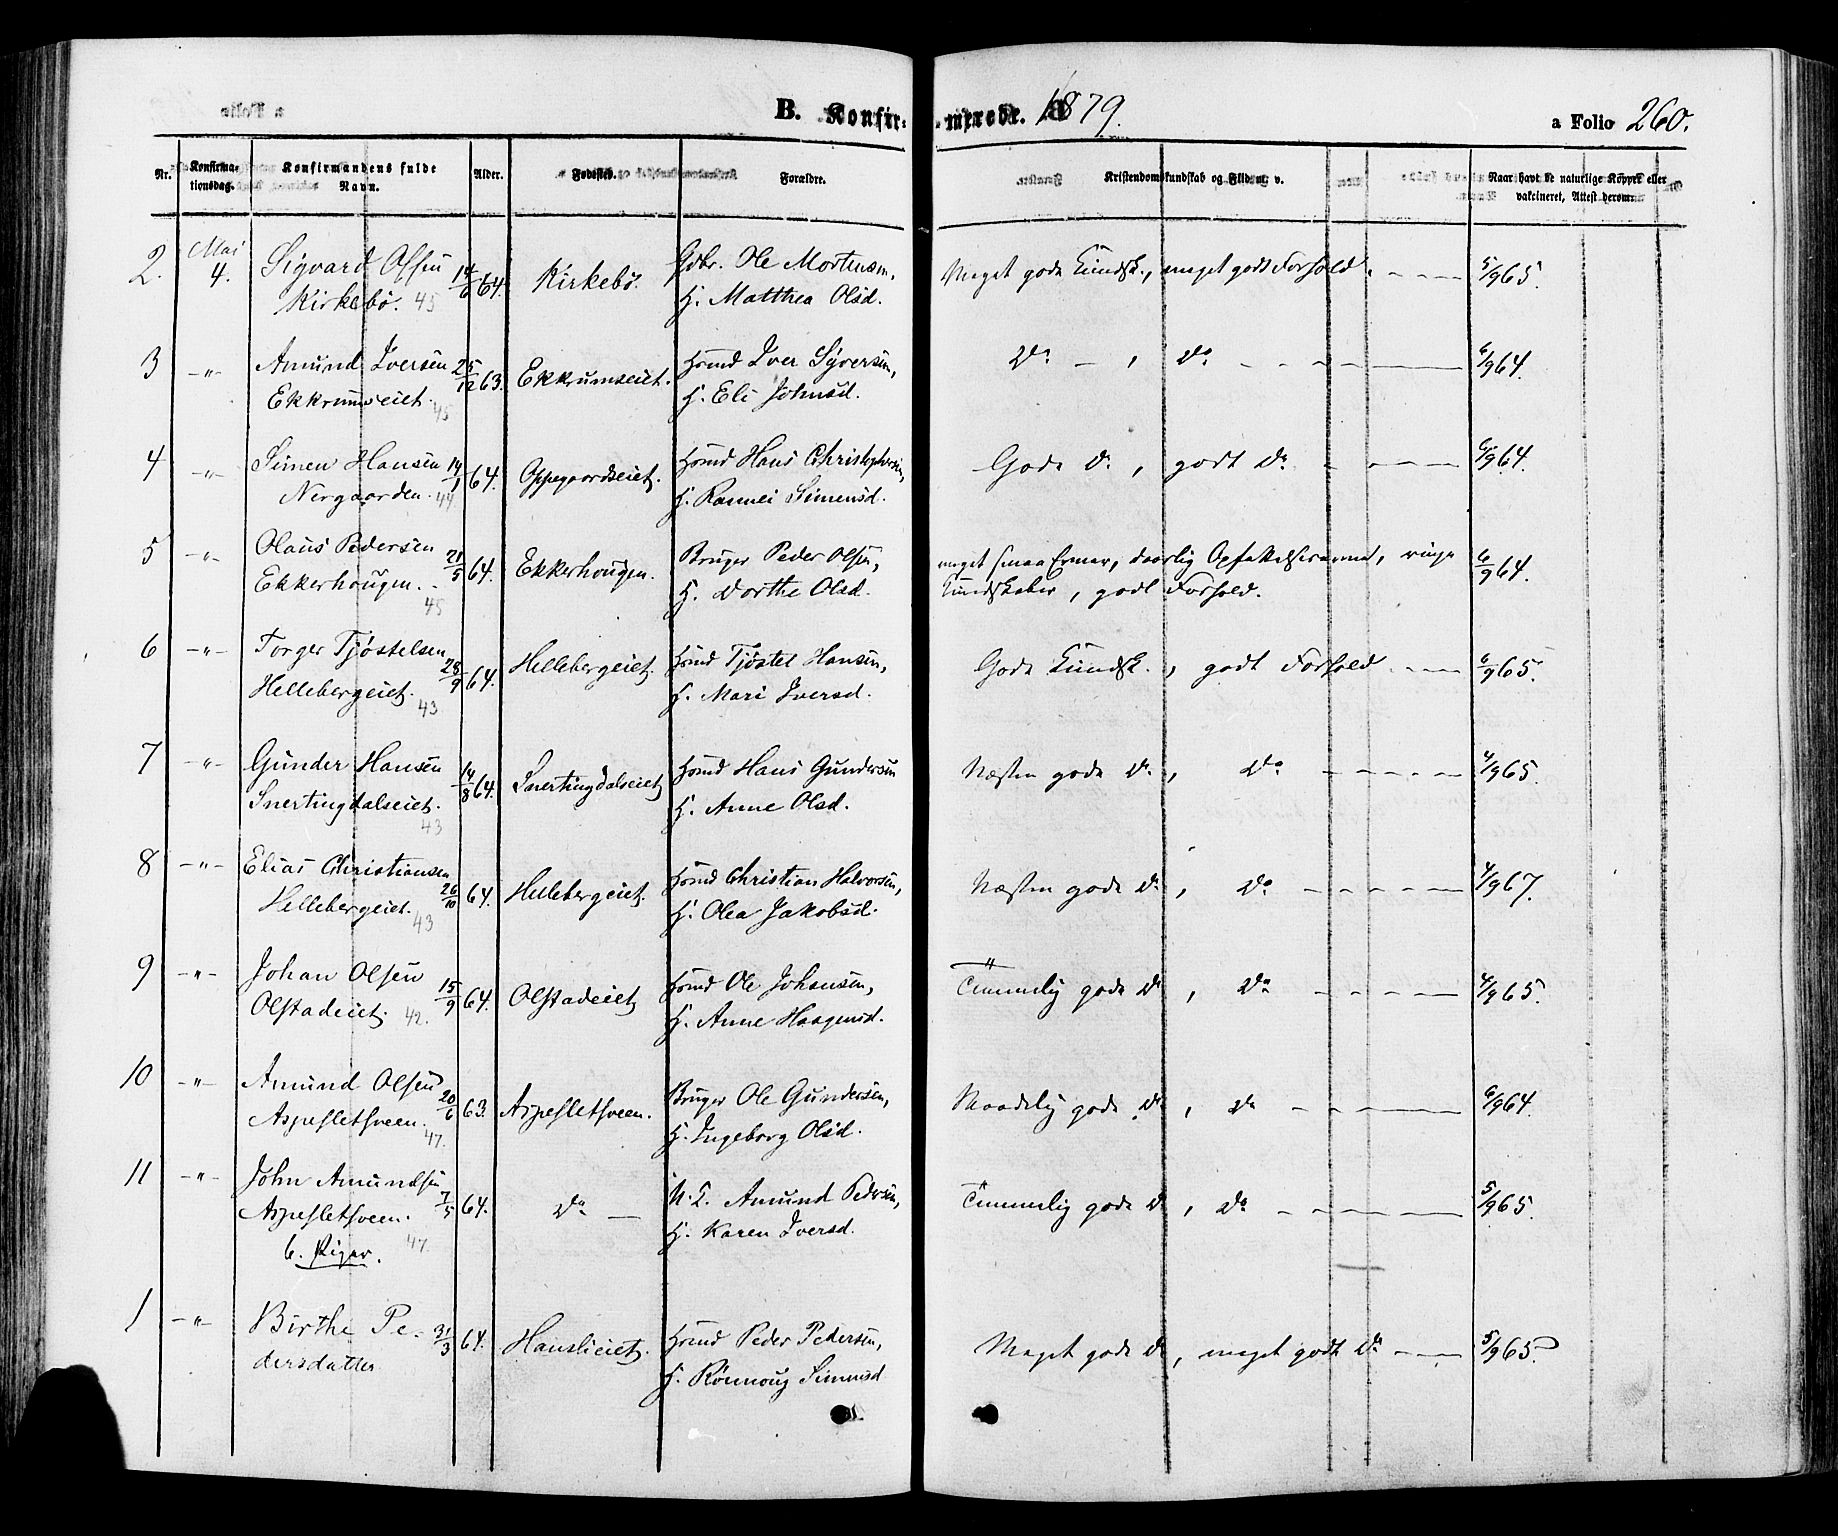 B. Konfirmerede. 1879.
a Folio 260.
Nr. Konfirmationsdag. Konfirmandens fulde Navn. Alder. Fødested. Forældre. Kristendomskundskab og Flid m. v. Naar havt de naturlige Kopper eller vakcineret, Attest derom.
2. Mai 4. Sigvard Olsen 14/6 64. Kirkebø. Gdbr. Ole Mortensen, Meget gode Kundsk., meget godt Forhold. 5/9 65.
Kirkebø. 45 H. Matthea Olsd.
3 -"- Amund Iversen 25/12 63. Ekkrumseiet. Hsmd Iver Syversen, Do - , Do 6/9 64.
Ekkrumseiet. 45 H. Eli Johnsd.
4 -"- Simen Hansen 14/1 64. Oppegaardseiet. Hsmd Hans Christophersen, Gode Do, godt Do 6/9 64.
Nergaarden. 44 H. Rannei Simensd.
5 -"- Olaus Pedersen 21/5 64. Ekkerhougen. Bruger Peder Olsen, meget smaa Evner, daarlig Opfattelsesevne, ringe 6/9 64.
Ekkerhougen. 45 H. Dorthe Olsd. Kundskaber, godt Forhold.
6 -"- Torger Tjøstelsen 28/9 64. Hellebergeiet. Hsmd Tjøstel Hansen, Gode Kundsk., godt Forhold 6/9 65.
Hellebergeiet. 43 H. Mari Iversd.
7 -"- Gunder Hansen 14/8 64. Snertingdalseiet Hsmd Hans Gundersen Næsten gode Do, Do 4/9 65.
Snertingdalseiet. 43 H. Anne Olsd.
8 -"- Elias Christiansen 26/10 64. Hellebergeiet. Hsmd Christian Halvorsen, Næsten gode Do, Do 4/9 67.
Hellebergeiet. 43 H. Olea Jakobsd.
9 -"- Johan Olsen 15/9 64. Olstadeiet Hsmd Ole Johansen, Temmelig gode Do, Do 4/9 65.
Olstadeiet. 42. H. Anne Haagensd.
10 -"- Amund Olsen 20/6 63. Aspesletsveen. Bruger Ole Gundersen, Maadelig gode Do, Do 6/9 64.
Aspesletsveen. 47. H. Ingeborg Olsd.
11 -"- John Amundsen 7/5 64. Do - Amund Pedersen, Temmelig gode Do, Do 5/9 65.
Aspesletsveen. 47. H. Karen Iversd.
b. Piger.
1 -"- Birthe Pe- 31/3 64. Hanslieiet. Hsmd Peder Pedersen, Meget gode Do, meget godt Do 5/9 65.
dersdatter H. Rønnoug Simensd